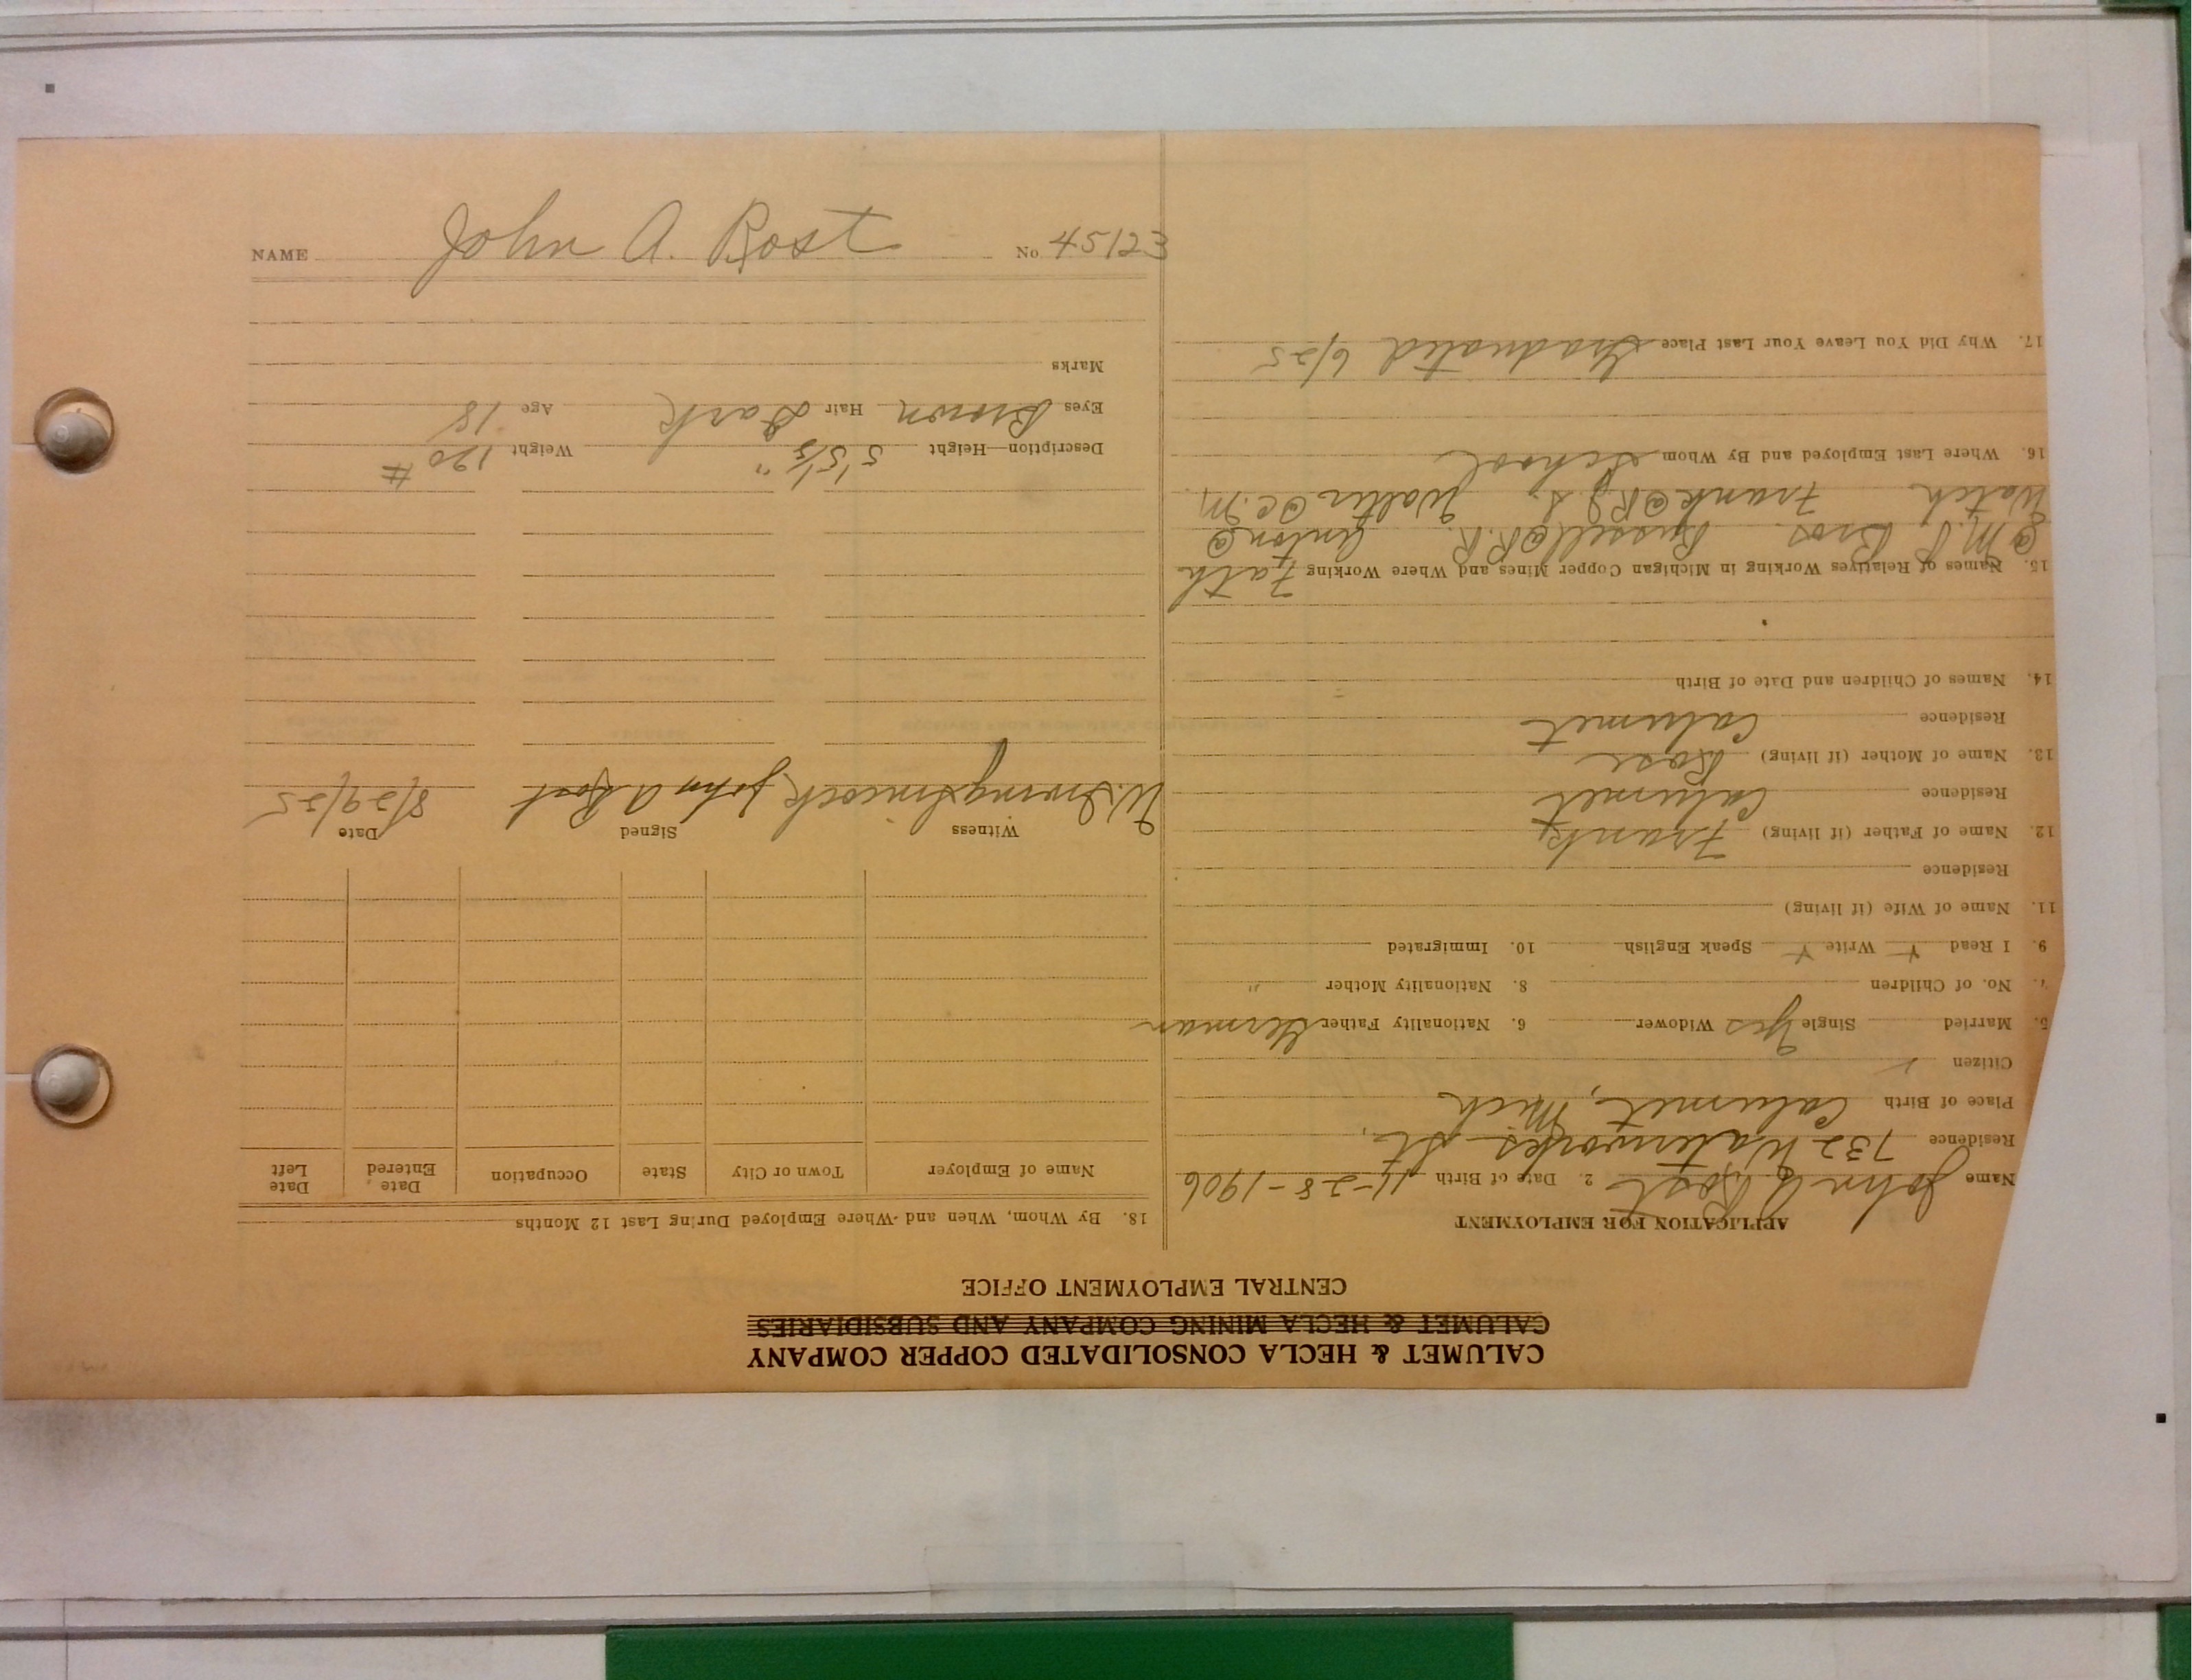 NAME John A. Rost No. 45123
CALUMET & HECLA CONSOLIDATED COPPER COMPANY
CALUMET & HECLA MINING COMPANY AND SUBSIDIARIES
CENTRAL EMPLOYMENT OFFICE
APPLICATION FOR EMPLOYMENT
Name John A Rost 2. Date of Birth 11-28-1906
Residence 732 Waterworks St.
Place of Birth Calumet, Mich
Citizen ✓
5. Married Single Yes Widower 6. Nationality Father German
7. No. of Children 8. Nationality Mother "
9. I Read Y Write Y Speak English 10. Immigrated
11. Name of Wife (if living)
Residence
12. Name of Father (if living) Frank
Residence Calumet
13. Name of Mother (if living) Rose
Residence Calumet
14. Names of Children and Date of Birth
15. Names of Relatives Working in Michigan Copper Mines and Where Working Fath
@ M.P. Bros. Russel @ R.R. Anton @
Watch Frank @ Walter @ C.M.
16. Where Last Employed and By Whom School
17. Why Did You Leave Your Last Place Graduated 6/25
18. By Whom, When and Where Employed During Last 12 Months
Name of Employer Town or City State Occupation Date Entered Date Left
Witness Signed Date
W. Irving John A Rost 8/29/25
Description—Height 5'5½" Weight 120 #
Eyes Brown Hair Dark Age 18
Marks